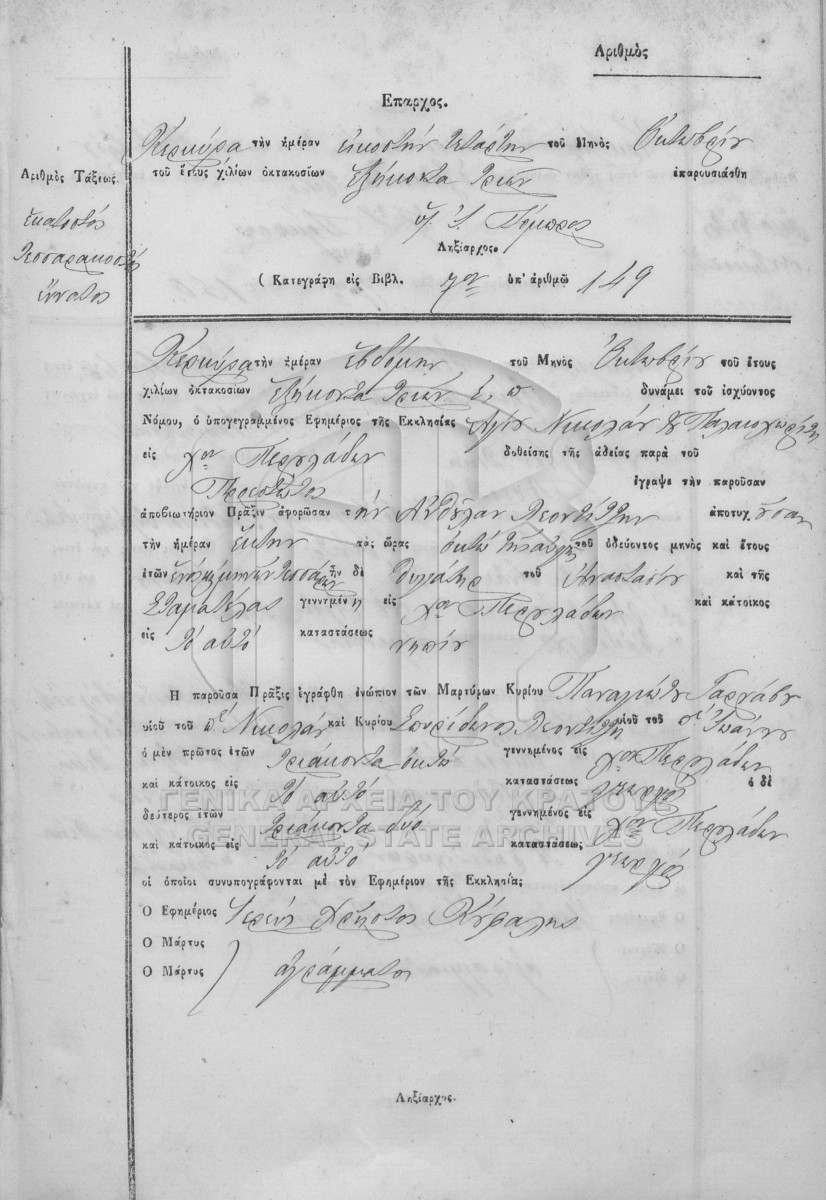 Αριθμὸς
Επαρχος.
Κερκύρα τὴν ἡμέραν εἰκοστὴν τετάρτην τοῦ Μηνὸς Ὀκτωβρίου
τοῦ Ἔτους χιλίων ὀκτακοσίων ἑξήκοντα τριῶν ἐπαρουσιάσθη
Ἀριθμὸς Τάξεως.
ἑκατοστὸς
τεσσαρακοστὸς
ἔννατος
Ληξίαρχος.
(Κατεγράφη εἰς Βιβλ. 7ον ὑπ' ἀριθμῶ 149
Κερκύρα τὴν ἡμέραν ἑβδόμην τοῦ Μηνὸς Ὀκτωβρίου τοῦ ἔτους
χιλίων ὀκτακοσίων ἑξήκοντα τριῶν ἔ. π. δυνάμει τοῦ ἰσχύοντος
Νόμου, ὁ ὑπογεγραμμένος Εφημέριος τῆς Εκκλησίας Ἁγίου Νικολάου
εἰς χον Περουλάδων δοθείσης τῆς ἀδείας παρὰ τοῦ
Πρωτο ἔγραψε τὴν παροῦσαν
ἀποβιωτήριον Πρᾶξιν ἀφορῶσαν τὴν Λεοντίτζην ἀποτυχοῦσαν
τὴν ἡμέραν ἕκτην τὰς ὥρας ὀκτὼ τοῦ ὁδεύοντος μηνὸς καὶ ἔτους
ἐτῶν ἑνὸς μηνῶν τεσσάρων ἦν δὲ θυγάτηρ τοῦ Ἀναστασίου καὶ τῆς
Σταματέλας γεννημένη εἰς χον Περουλάδων καὶ κάτοικος
εἰς τὸ αὐτὸ καταστάσεως νηπίου
Η παροῦσα Πρᾶξις ἐγράφθη ἐνώπιον τῶν Μαρτύρων Κυρίου Παναγιώτου
υἱοῦ τοῦ ποτέ Νικολάου καὶ Κυρίου Σπυρίδωνος Λεοντίτζη υἱοῦ τοῦ ποτέ Ἰωάννου
ὁ μὲν πρῶτος ἐτῶν τριάκοντα ὀκτὼ γεννημένος εἰς χον Περουλάδων
καὶ κάτοικος εἰς τὸ αὐτὸ καταστάσεως γεωργὸς ὁ δὲ
δεύτερος ἐτῶν τριάκοντα δύο γεννημένος εἰς χον Περουλάδων
καὶ κάτοικος εἰς τὸ αὐτὸ καταστάσεως γεωργὸς
οἱ ὁποῖοι συνυπογράφονται μὲ τὸν Εφημέριον τῆς Εκκλησίας
Ο Εφημέριος Ἱερεὺς Χρῆστος
Ο Μάρτυς
Ο Μάρτυς ) ἀγράμματοι
Ληξίαρχος.
ΓΕΝΙΚΑ ΑΡΧΕΙΑ ΤΟΥ ΚΡΑΤΟΥΣ
GENERAL STATE ARCHIVES